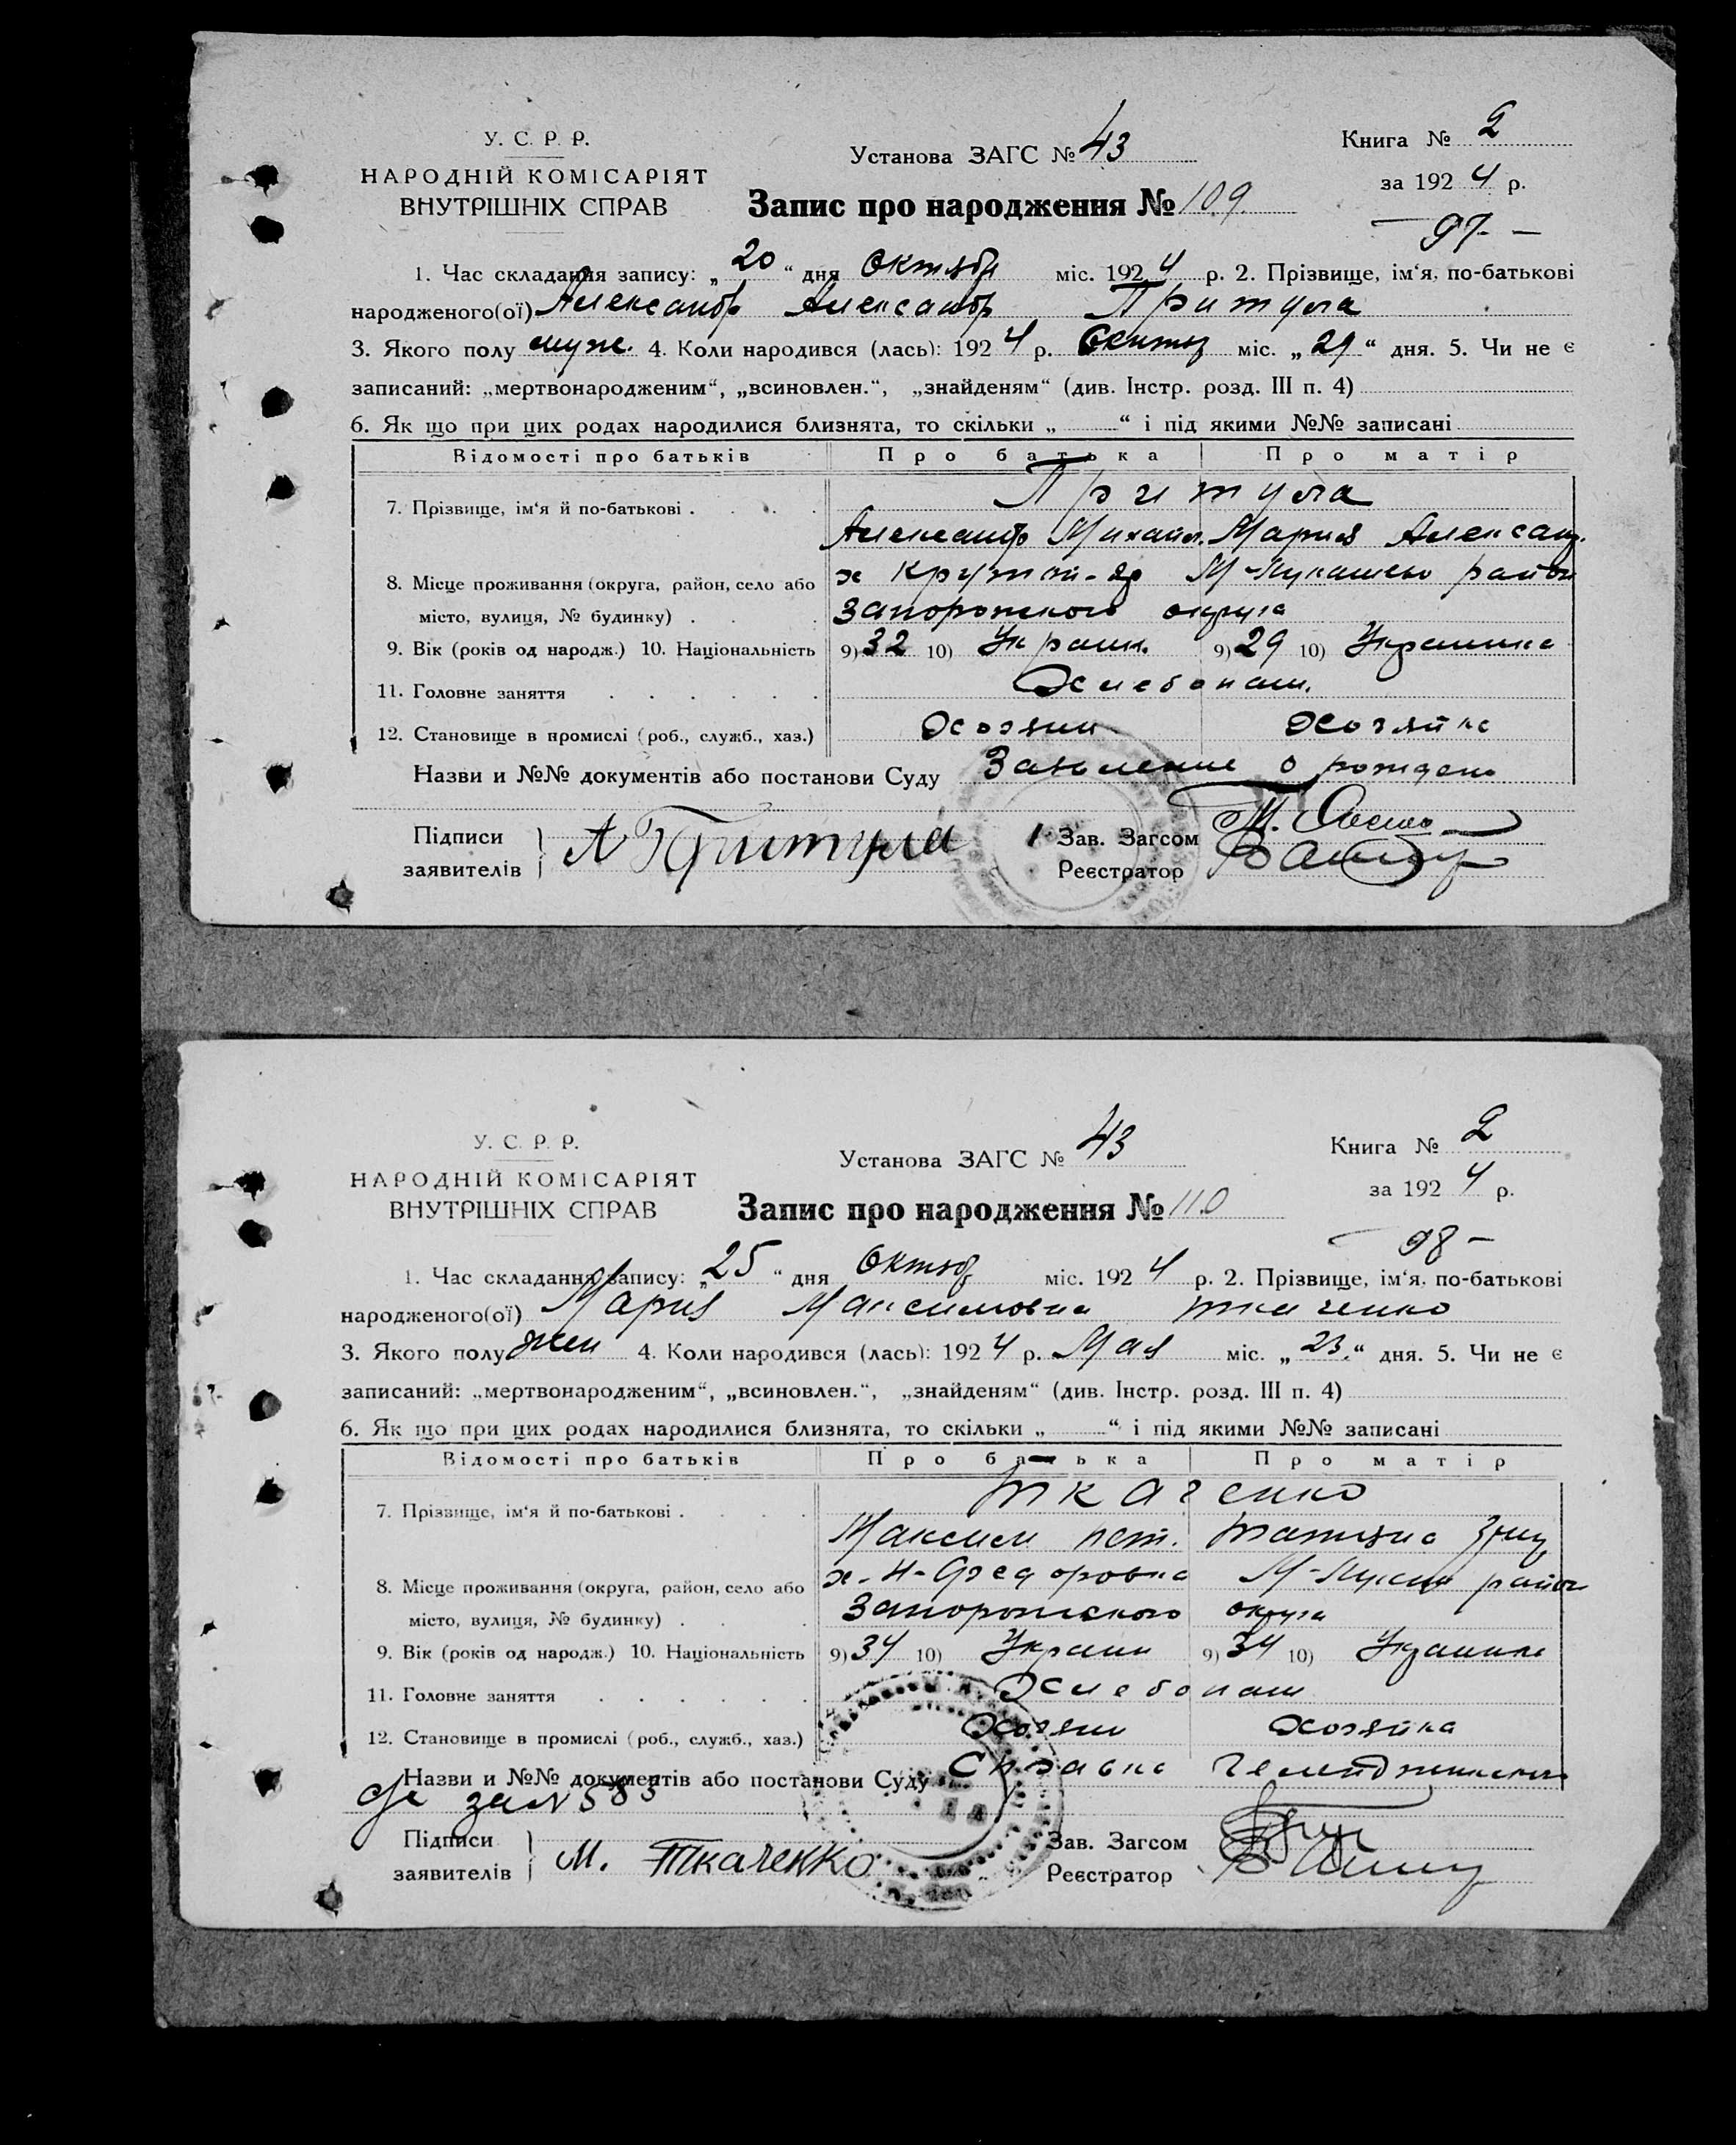 У. С. Р. Р.
НАРОДНІЙ КОМІСАРІЯТ
ВНУТРІШНІХ СПРАВ
Установа ЗАГС № 43
Книга № 2
за 1924 р.
Запис про народження № 109
97
1. Час складання запису: „20“ дня Октябр міс. 1924 р. 2. Прізвище, ім‘я, по-батькові
народженого(ої) Александр Александр Притула
3. Якого полу муж. 4. Коли народився (лась): 1924 р. міс. „ “ дня. 5. Чи не є
записаний: „мертвонародженим“, „всиновлен.“, „знайденям“ (див. Інстр. розд. III п. 4)
6. Як що при цих родах народилися близнята, то скільки „ “ і під якими №№ записані
Відомості про батьків Про батька Про матір
Притула
7. Прізвище, ім‘я й по-батькові
Александр Михайл. Мария Александ.
8. Місце проживання (округа, район, село або х Крутой-яр М- район
місто, вулиця, № будинку) Запорожского округа
9. Вік (років од народж.) 10. Національність 9) 32 10) Украин. 9) 29 10) Украинка
11. Головне заняття Хлебопаш.
12. Становище в промислі (роб., служб., хаз.) Хозяин Хозяйка
Назви и №№ документів або постанови Суду Заявление о рожден
Підписи
заявителів А Притула
Зав. Загсом
Реєстратор
У. С. Р. Р.
НАРОДНІЙ КОМІСАРІЯТ
ВНУТРІШНІХ СПРАВ
Установа ЗАГС № 43
Книга № 2
за 1924 р.
Запис про народження № 110
98
1. Час складання запису: „25“ дня Октяб міс. 1924 р. 2. Прізвище, ім‘я, по-батькові
народженого(ої) Мария Максимовна Ткаченко
3. Якого полу жен 4. Коли народився (лась): 1924 р. Мая міс. „23.“ дня. 5. Чи не є
записаний: „мертвонародженим“, „всиновлен.“, „знайденям“ (див. Інстр. розд. III п. 4)
6. Як що при цих родах народилися близнята, то скільки „ “ і під якими №№ записані
Відомості про батьків Про батька Про матір
Ткаченко
7. Прізвище, ім‘я й по-батькові
Максим Пет. Татяна
8. Місце проживання (округа, район, село або х-Н-Федоровка М- район
місто, вулиця, № будинку) Запорожского округа
9. Вік (років од народж.) 10. Національність 9) 34 10) Украин 9) 34 10) Украинка
11. Головне заняття Хлебопаш
12. Становище в промислі (роб., служб., хаз.) Хозяин Хозяйка
Назви и №№ документів або постанови Суду Справка
за № 583
Підписи
заявителів М. Ткаченко
Зав. Загсом
Реєстратор